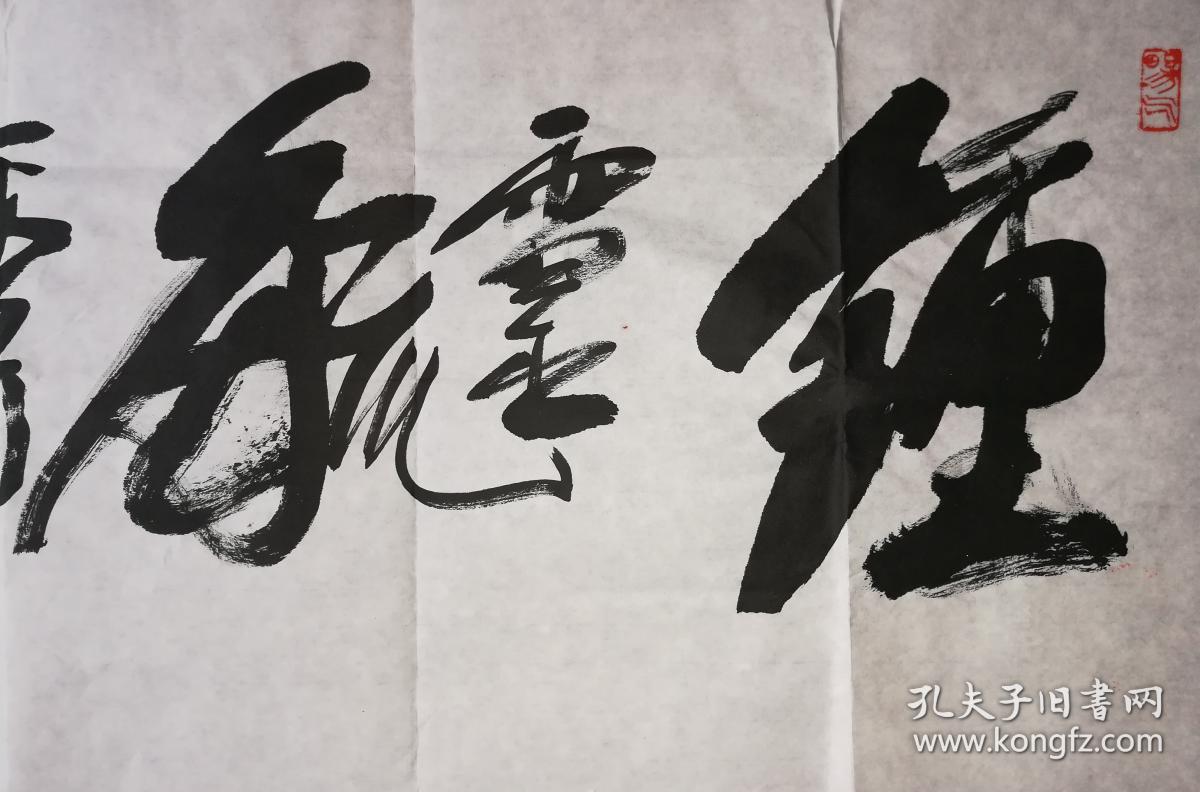 鍾靈毓
孔夫子旧書网
www.kongfz.com